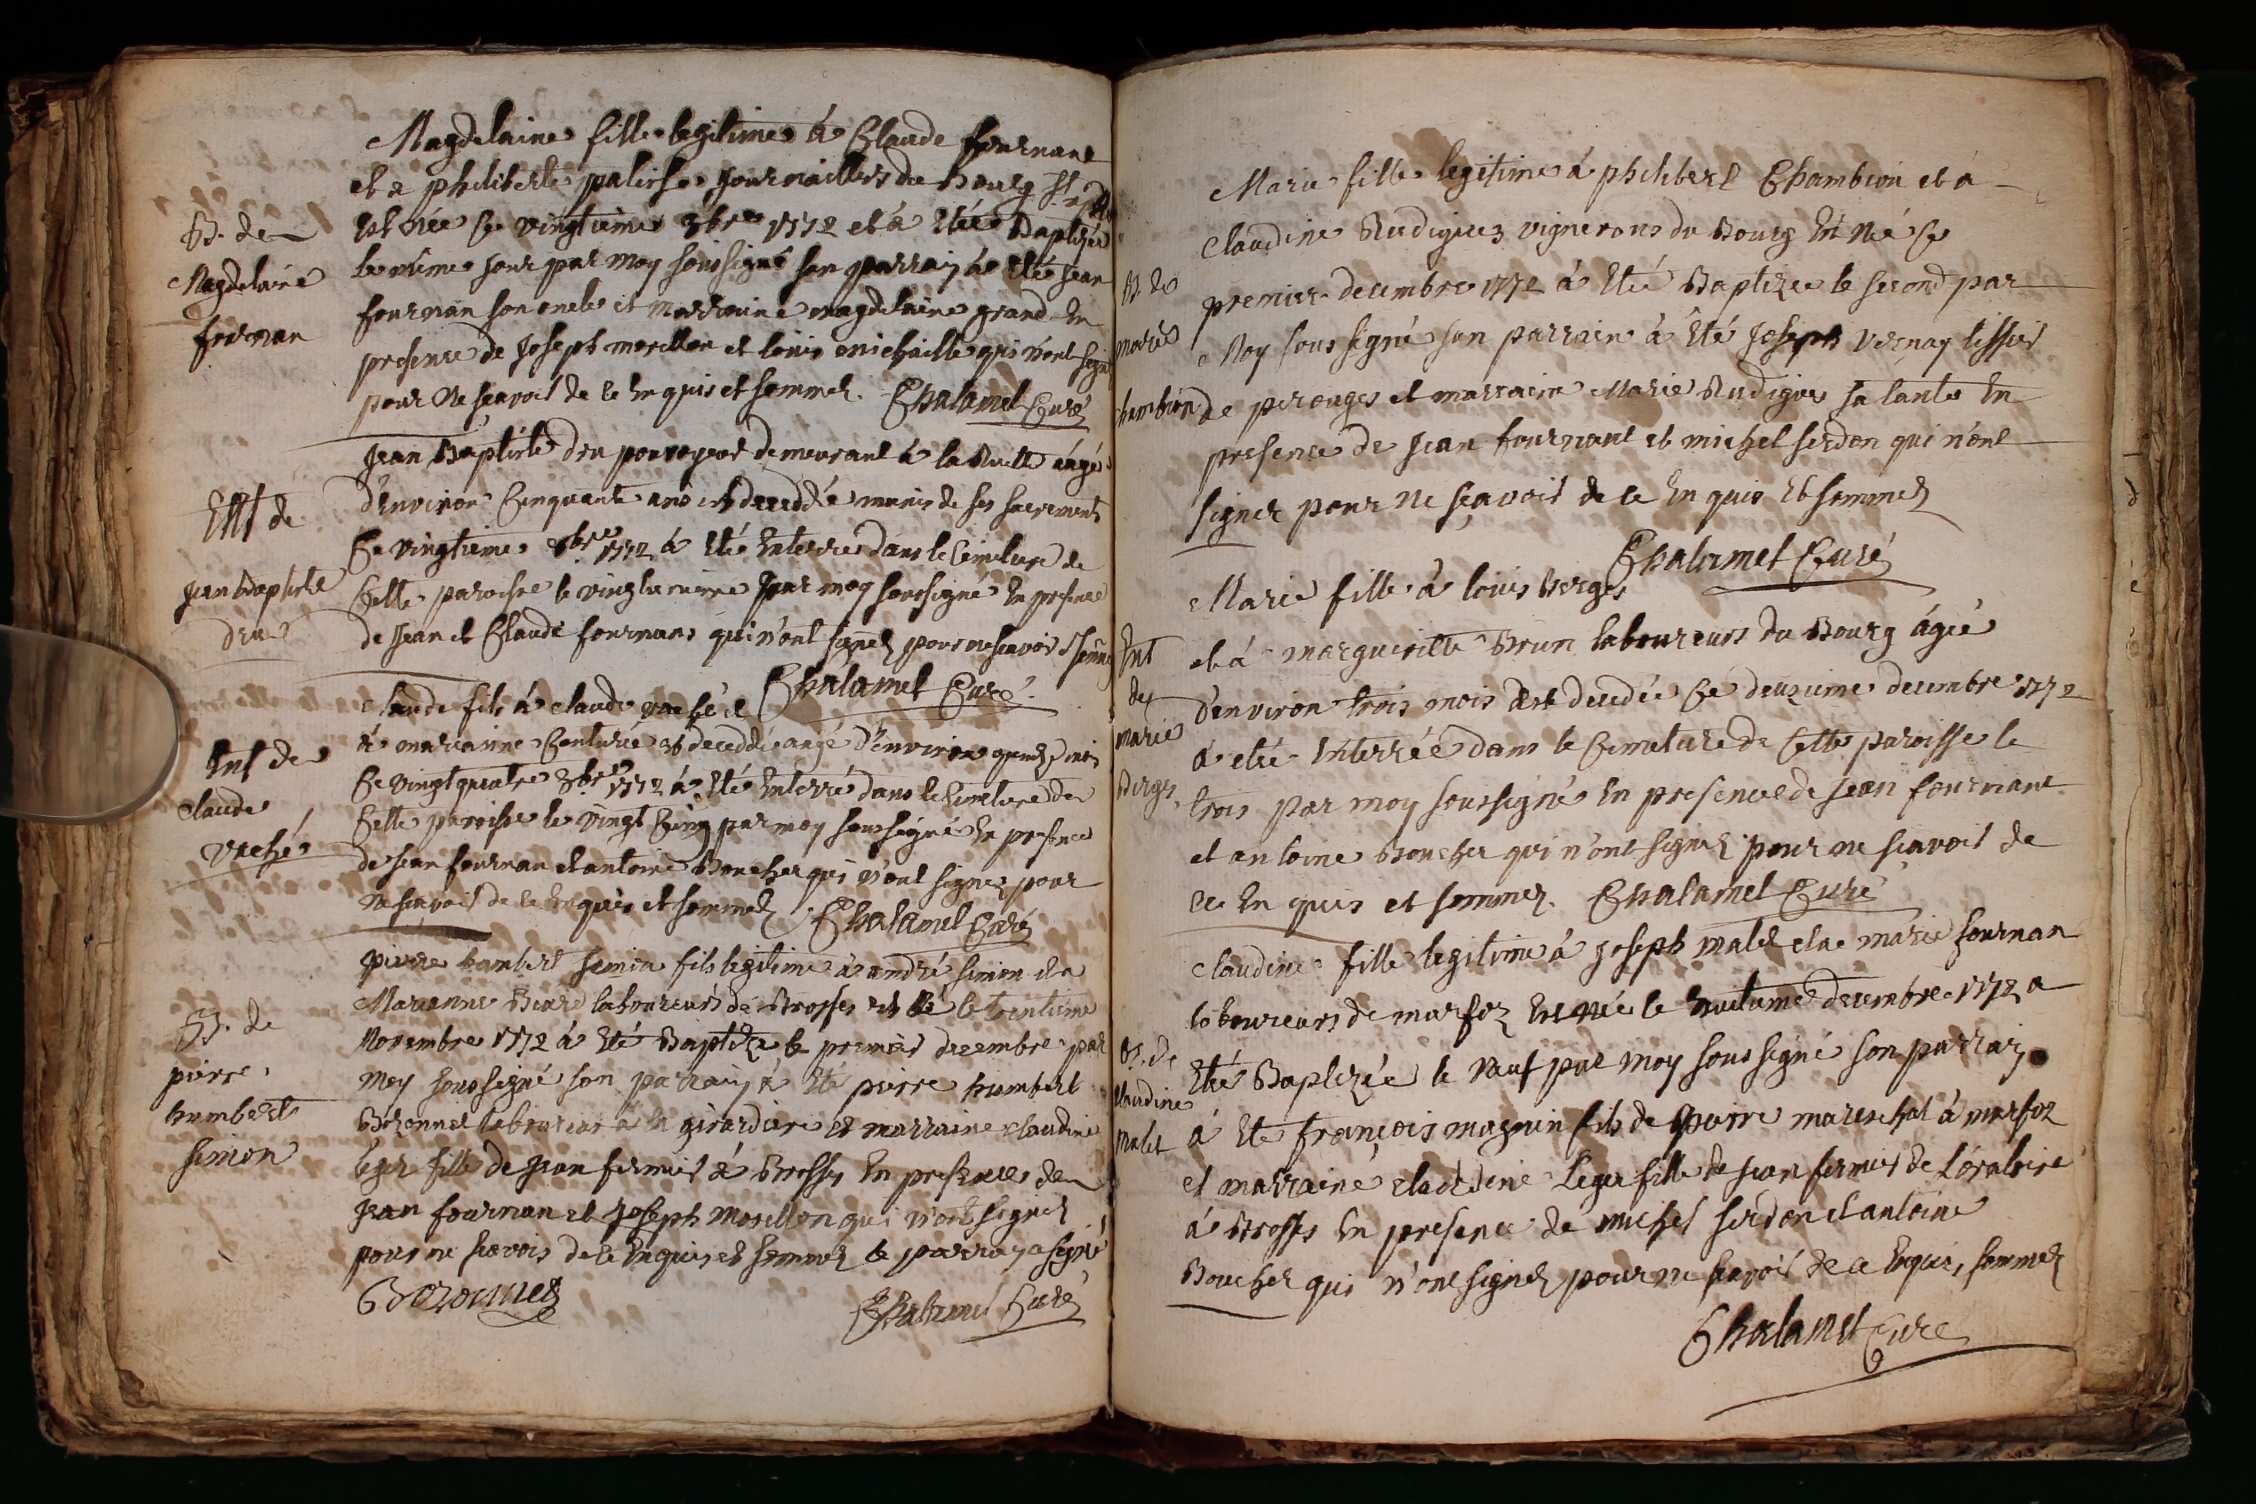 B. de
Magdelaine
fournan
Magdelaine fille legitime à Claude fournant
et a philiberte journailliers du Bourg
Est Née Ce vingtieme 9bre 1772 et à Eté Baptizée
le même jour par moy soussigné son parrain à Eté jean
fournan son oncle et marraine magdelaine grand En
presence de joseph morillon et louis michaille qui n'ont signé
pour Ne sçavoir de ce Enquis et sommez. Chalamel Curé
Ent de
jean baptiste
dru
jean Baptiste dru pourvoyeur demeurant à la Ruette âgé
d'Environ Cinquante ans est deceddé munis de ses sacrements
Ce vingtieme 9bre 1772 à Eté Enterré dans le Cimetiere de
Cette paroisse le vingtunieme par moy soussigné En presence
de jean et Claude fournans qui n'ont signez pour ne sçavoir
Chalamel Curé
Ent de
claude
vaché
claude fils à claude vaché et
à marianne est deceddé angé d'environ mois
Ce vingtquatre 9bre 1772 à Eté Enterré dans le Cimetiere de
Cette paroisse le vingt Cinq par moy soussigné En presence
de jean fournan et antoine Boucher qui n'ont signez pour
ne sçavoir de ce Enquis et sommez Chalamel Curé
B. de
pierre
humbert
simon
pierre humbert simon fils legitime à andré simon et a
Marianne laboureurs de Brosses est Né le trentieme
Novembre 1772 à Eté Baptizé le premier decembre par
moy soussigné son parrain à Eté pierre humbert
Bozonnet laboureur à la girardiere et marraine claudine
leger fille de jean fermier à Brosses En presence de
jean fournan et joseph morillon qui n'ont signez
pour ne sçavoir de ce Enquis et sommez le parrain a signé
Bozonnet
Chalamel Curé
B. de
marie
chambion
Marie fille legitime à philibert Chambion et à
claudine Rudigues vignerons du Bourg Est Née Ce
premier decembre 1772 à Eté Baptizée le second par
Moy soussigné son parrain à Eté joseph vernay tissier
de perouges et marraine Marie Rudigue sa tante En
presence de jean fournant et michel serdon qui n'ont
signez pour ne sçavoir de ce Enquis Et sommez
Chalamel Curé
Ent
de
marie
Berger
Marie fille à louis Berger
et à marguerite Brun laboureurs du Bourg âgée
d'environ trois mois est decedée Ce deuzieme decembre 1772
à eté Enterrée dans le Cimetiere de Cette paroisse le
trois par moy soussigné En presence de jean fournant
et antoine Boucher qui n'ont signez pour ne sçavoir de
ce Enquis et sommez. Chalamel Curé
B. de
claudine
malet
claudine fille legitime à joseph malet et a marie fournan
laboureurs de marfoz Est Née le huitieme decembre 1772 a
Eté Baptizée le neuf par moy soussigné son parrain
à Eté françois magnin fils de pierre mareschal à marfoz
et marraine claudine leger fille de jean fermier de l'oratoire
à Brosses En presence de michel serdon et antoine
Boucher qui n'ont signez pour ne sçavoir de ce Enquis, sommez
Chalamel Curé